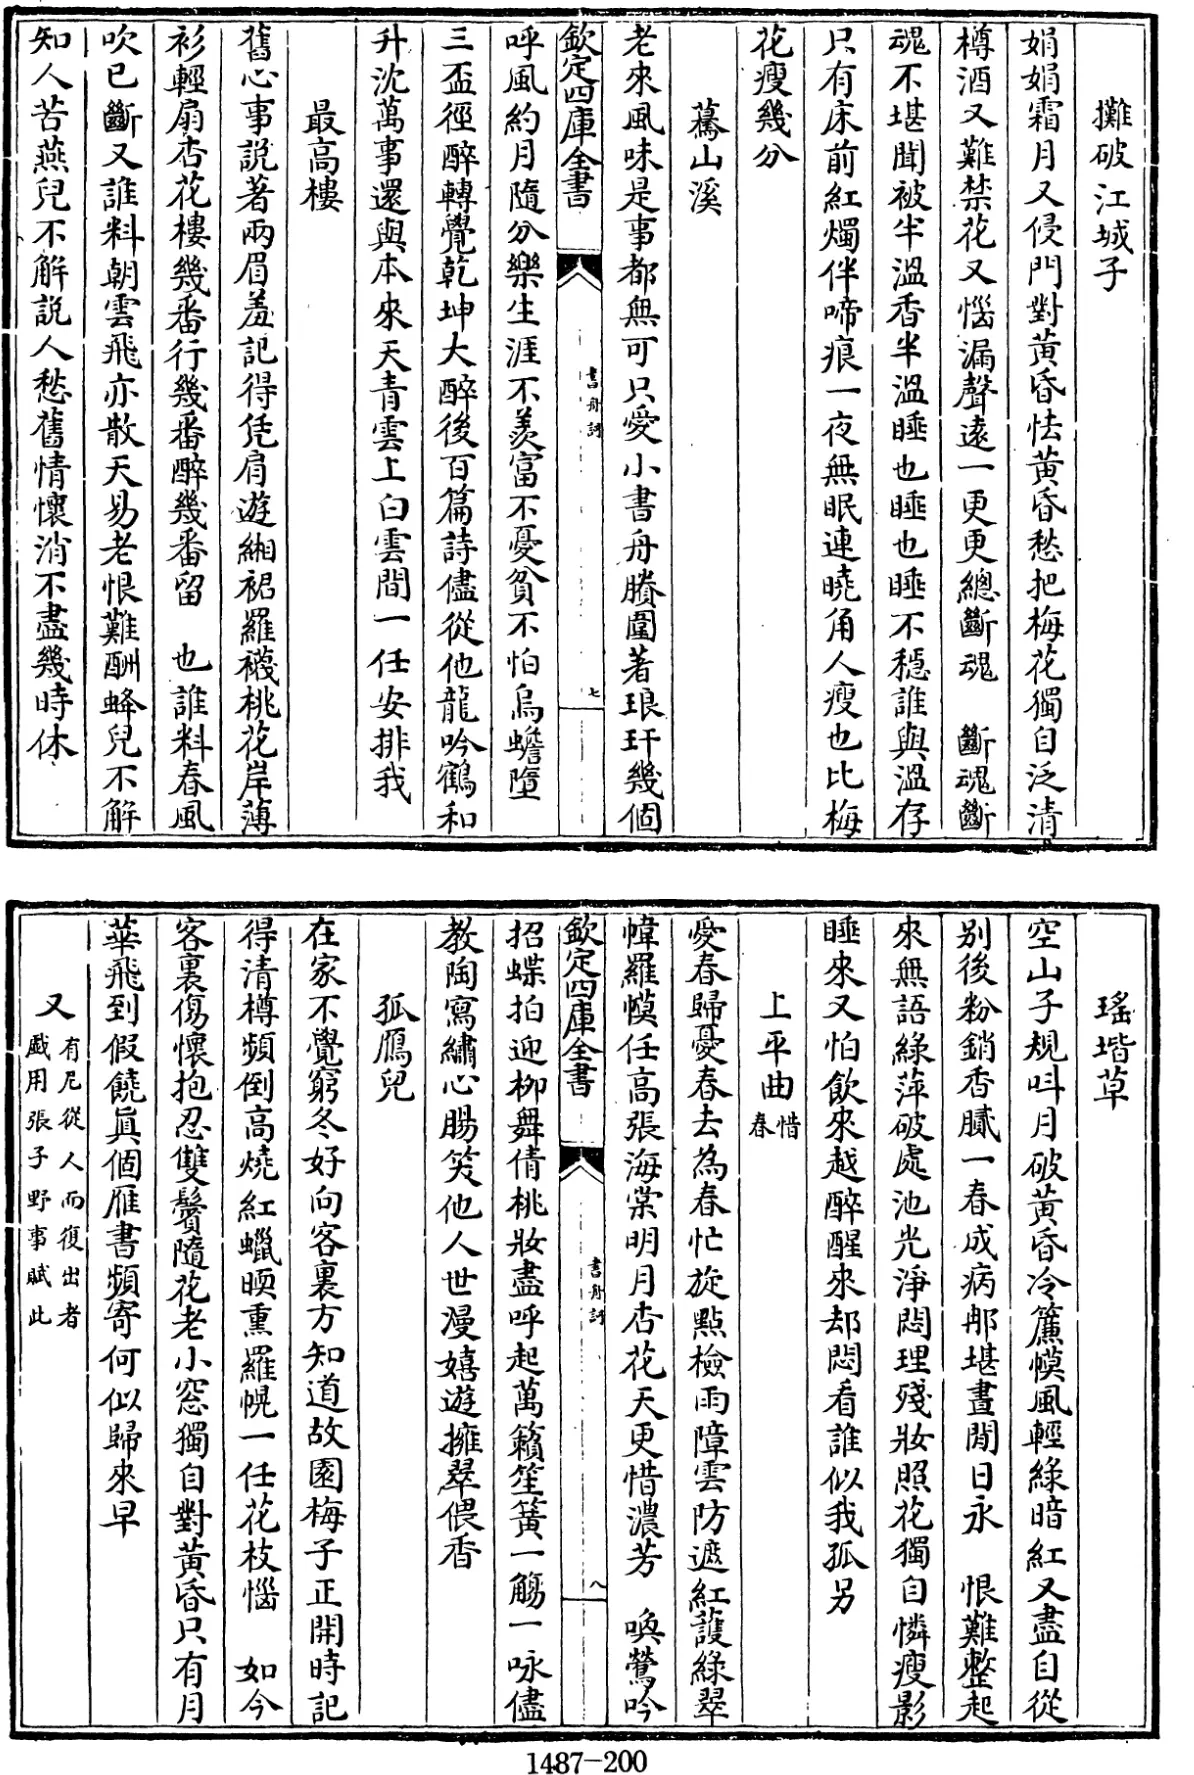 攤破江城子
娟娟霜月又侵門對黃昏怯黃昏愁把梅花獨自泛清
樽酒又難禁花又惱漏聲遠一更更總斷魂　斷魂斷
魂不堪聞被半溫香半溫睡也睡也睡不穩誰與溫存
只有床前紅燭伴啼痕一夜無眠連曉角人瘦也比梅
花瘦幾分
驀山溪
老來風味是事都無可只愛小書舟賸圍著琅玕幾個
欽定四庫全書
書舟詞
七
呼風約月隨分樂生涯不羨富不憂貧不怕烏蟾墮
三盃徑醉轉覺乾坤大醉後百篇詩儘從他龍吟鶴和
升沈萬事還與本來天青雲上白雲間一任安排我
最高樓
舊心事說著兩眉羞記得凭肩遊緗裙羅襪桃花岸薄
衫輕扇杏花樓幾番行幾番醉幾番留　也誰料春風
吹已斷又誰料朝雲飛亦散天易老恨難酬蜂兒不解
知人苦燕兒不解說人愁舊情懷消不盡幾時休
瑤堦草
空山子規叫月破黃昏冷簾幙風輕綠暗紅又盡自從
別後粉銷香膩一春成病那堪晝閒日永　恨難整起
來無語綠萍破處池光淨悶理殘妝照花獨自憐瘦影
睡來又怕飲來越醉醒來却悶看誰似我孤另
上平曲惜春
愛春歸憂春去為春忙旋點檢雨障雲防遮紅護綠翠
幃羅幙任高張海棠明月杏花天更惜濃芳　喚鶯吟
欽定四庫全書
書舟詞
八
招蝶拍迎柳舞倩桃妝盡呼起萬籟笙簧一觴一咏儘
教陶寫繡心腸笑他人世漫嬉遊擁翠偎香
孤鴈兒
在家不覺窮冬好向客裏方知道故園梅子正開時記
得清樽頻倒高燒紅蠟暖熏羅幌一任花枝惱　如今
客裏傷懷抱忍雙鬢隨花老小窓獨自對黃昏只有月
華飛到假饒真個雁書頻寄何似歸來早
又有尼從人而復出者戲用張子野事賦此
1487-200